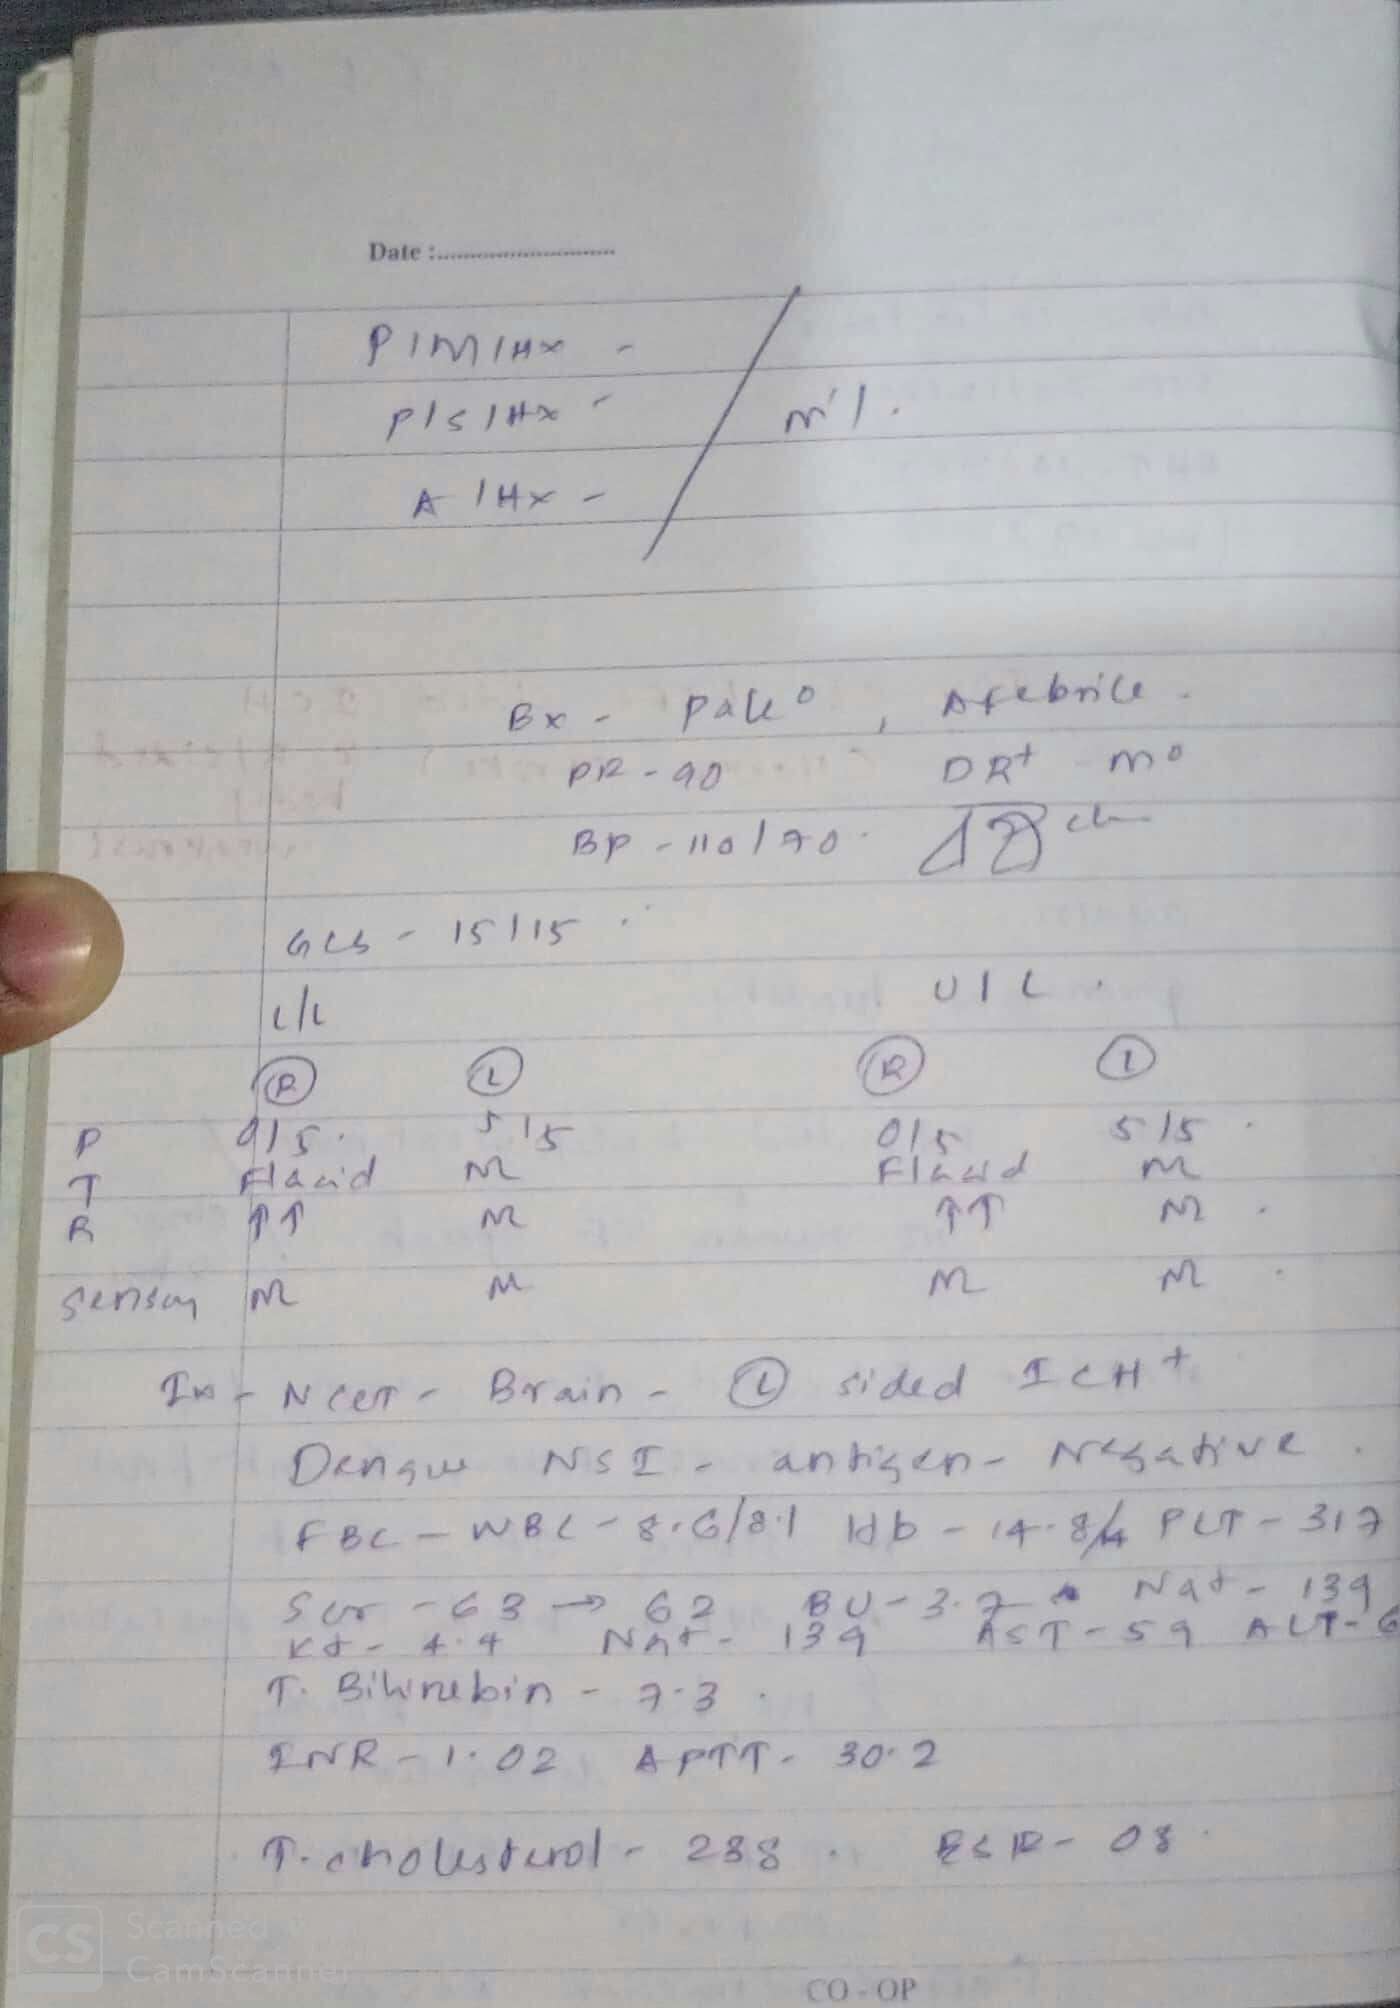 Date :..............................
P/M/Hx -
P/S/Hx - nil.
A/Hx -
Ex - Pale⁰, Afebrile.
PR - 90 DR+ M⁰
BP - 110/70.
GCS - 15/15
L/L U/L.
Ⓡ Ⓛ Ⓡ Ⓛ
P 0/5. 5/5 0/5 5/5.
T Flacid N Flacid N
R ↑↑ N ↑↑ N.
Sensory N N N N.
Ix - NCCT - Brain - Ⓛ sided ICH+
Dengue NS1 - antigen - Negative.
FBC - WBC - 8.6/8.1 Hb - 14.8/ PLT - 317
Scr - 63 → 62 BU - 3.7 Na+ - 139
K+ - 4.4 Na+ - 139 AST - 59 ALT - 6
T. Bilirubin - 7.3.
INR - 1.02 APTT - 30.2
T. cholesterol - 238. ESR - 08.
CS Scanned w
CamScanner
CO-OP